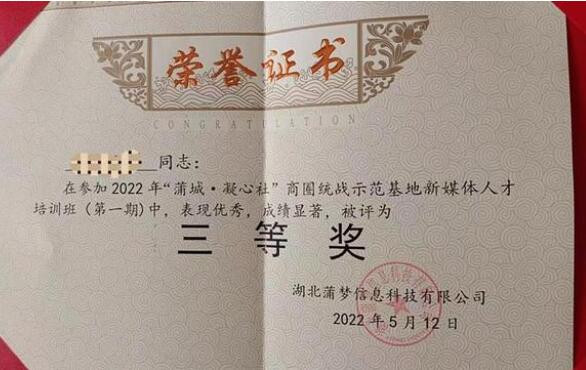 荣誉证书
CONGRATULATION
同志：
在参加2022年“蒲城·凝心社”商圈统战示范基地新媒体人才
培训班（第一期)中，表现优秀，成绩显著，被评为
三等奖
湖北蒲梦信息科技有限公司
2022年5月12日